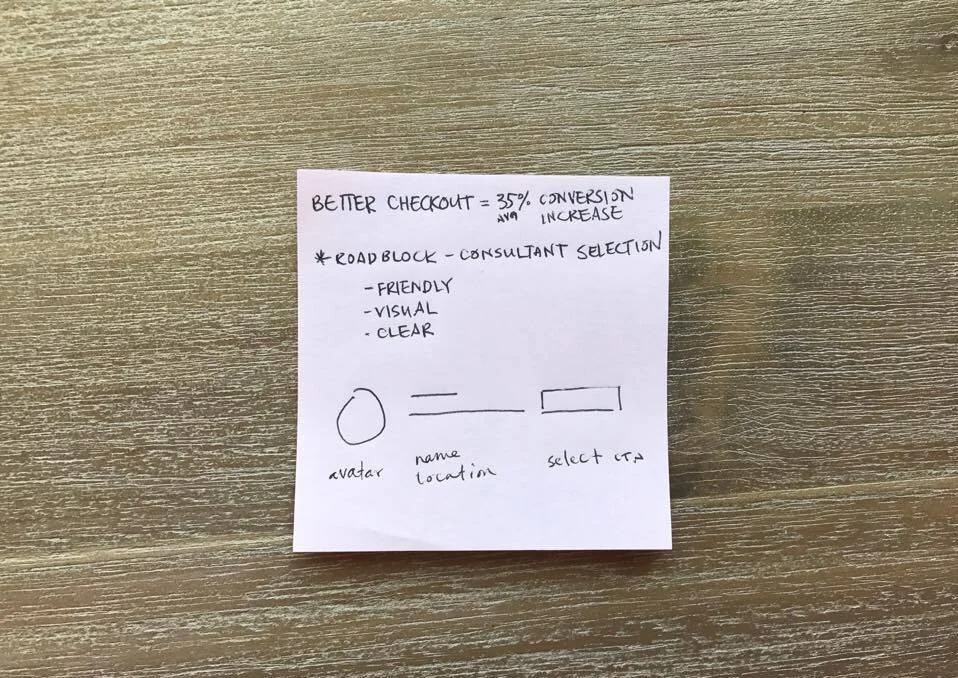 BETTER CHECKOUT = 35% CONVERSION
AVG INCREASE
* ROADBLOCK - CONSULTANT SELECTION
- FRIENDLY
- VISUAL
- CLEAR
avatar name select CTA
location